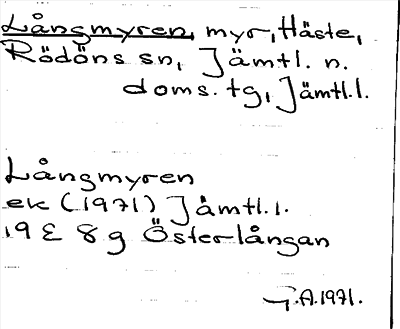 Långmyren, myr, Häste,
Rödöns sn, Jämtl. n.
doms. tg, Jämtl. l.
Långmyren
ek (1971) Jämtl. l.
19 E 8 g Österlångan
G.A. 1971.